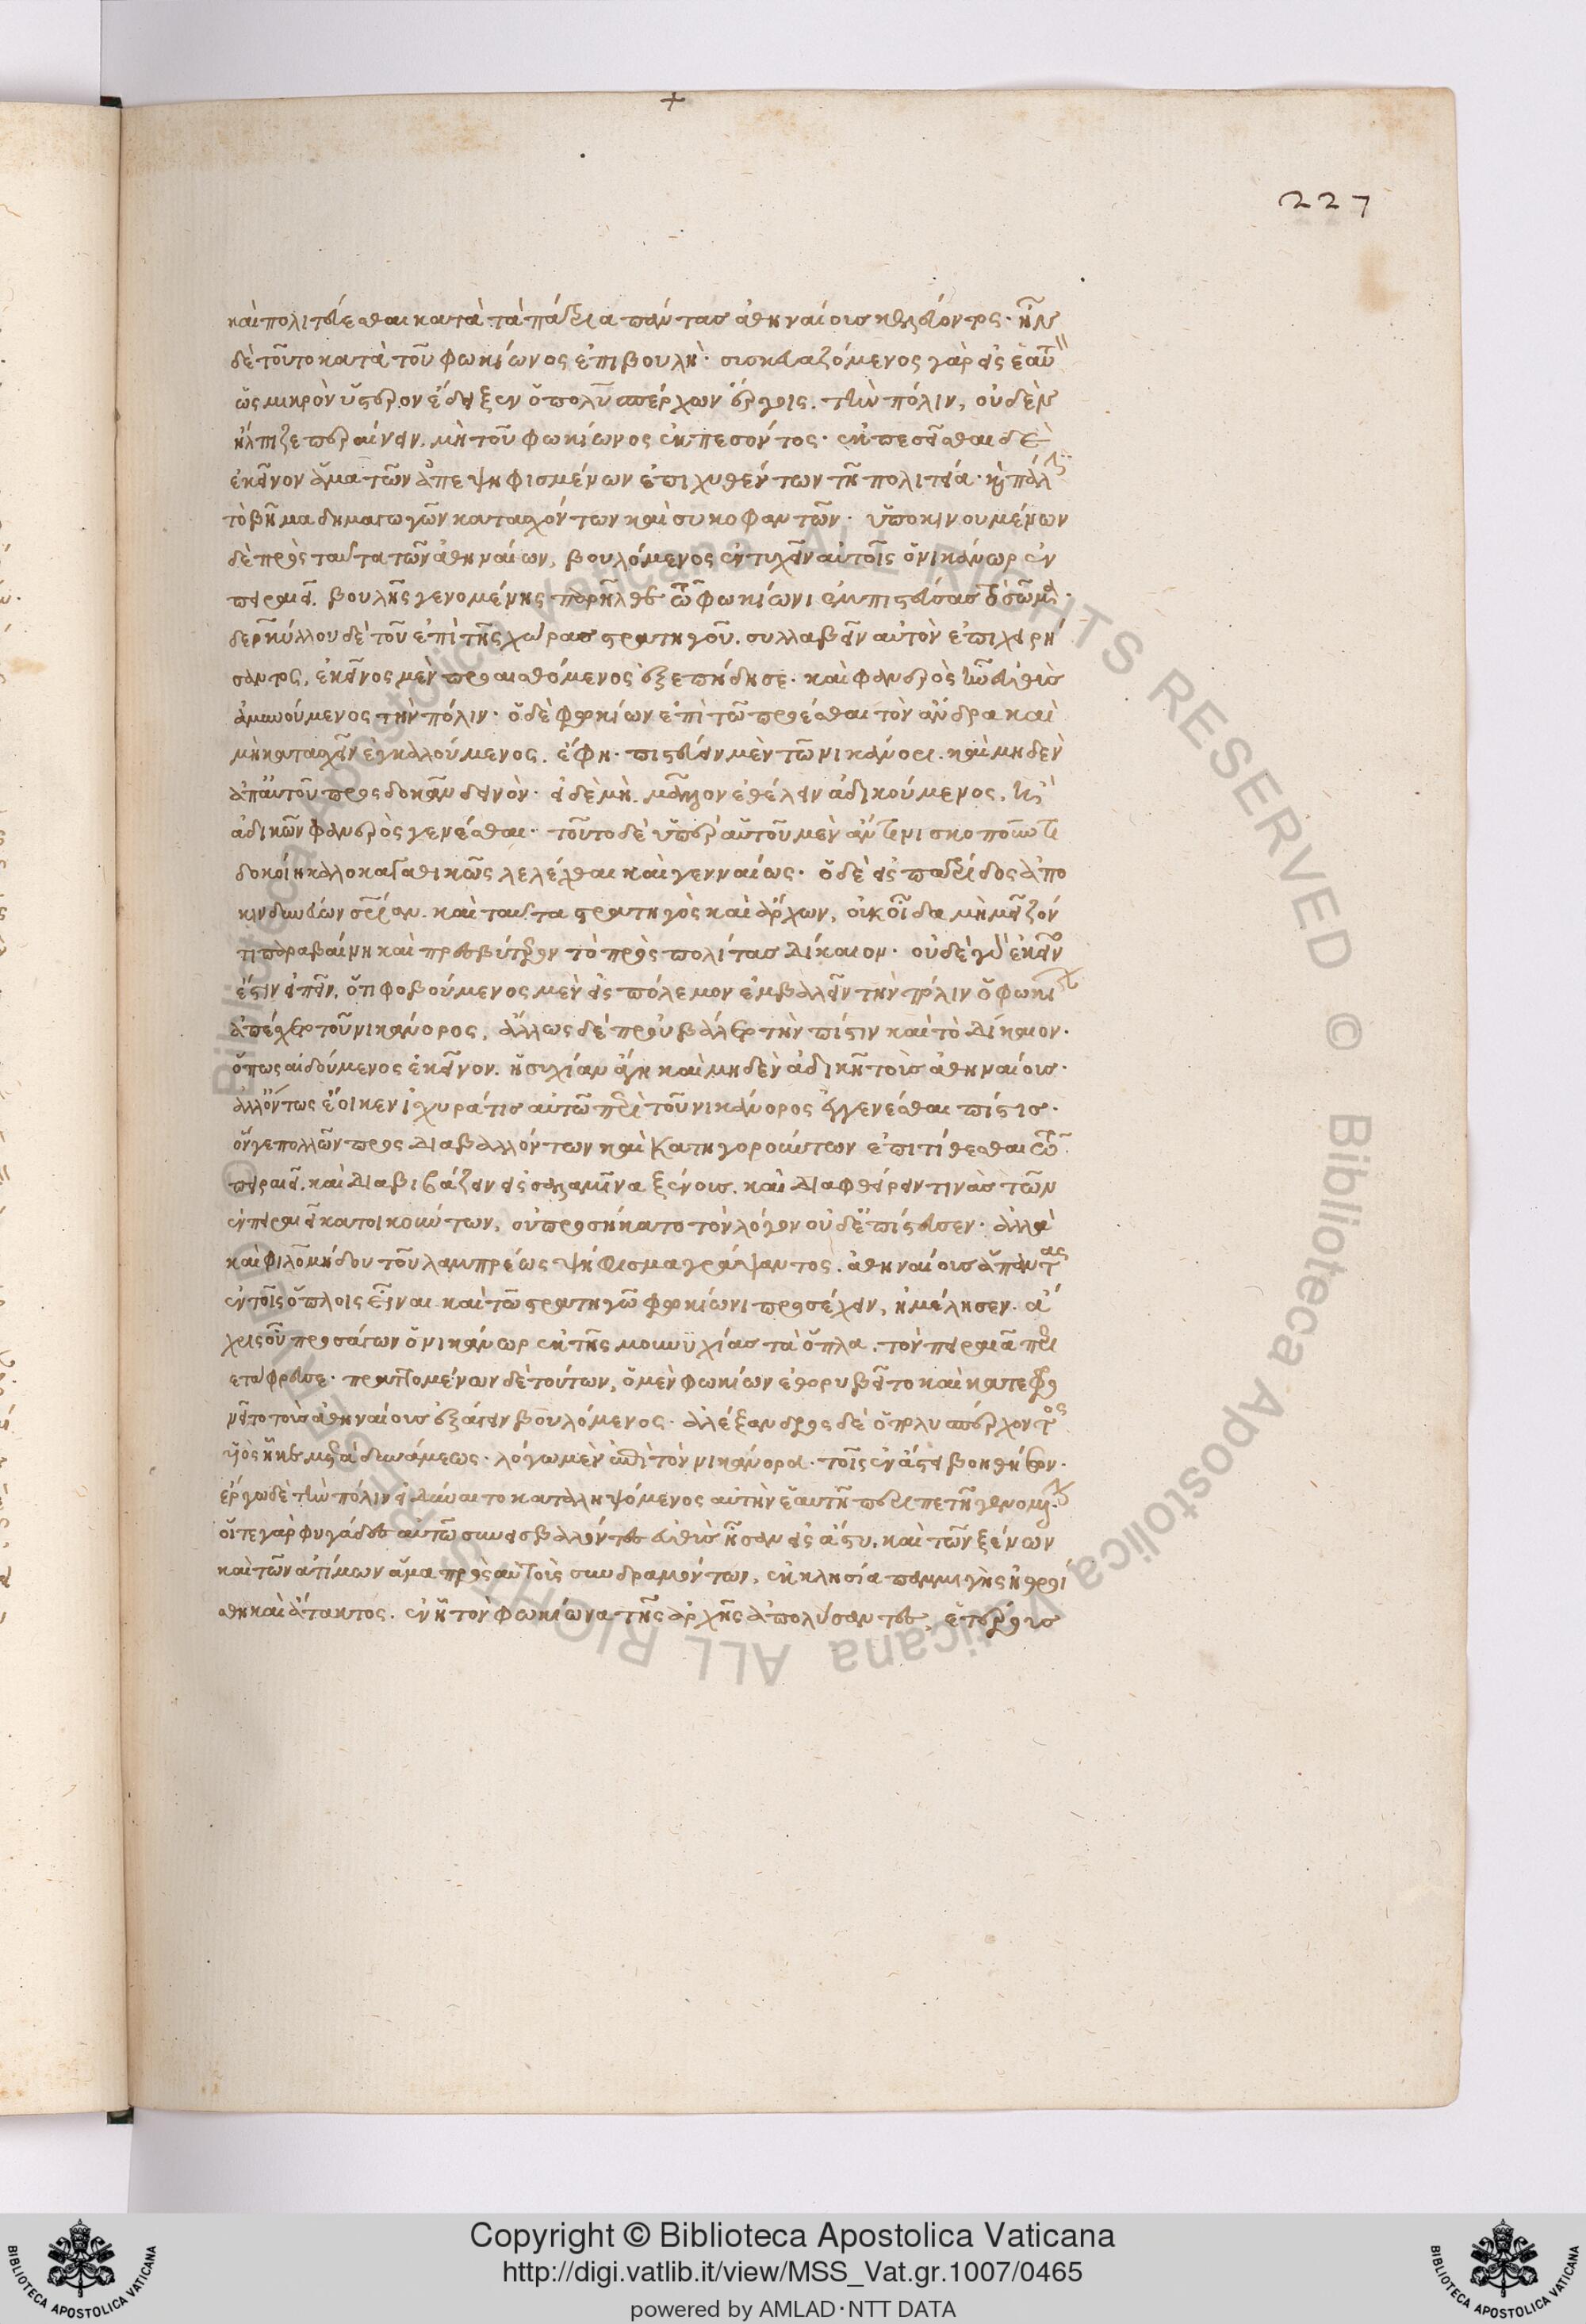 227
καὶ πολιτεύεσθαι κατὰ τὰ πάτρια πάντας ἀθηναίους κελεύοντος· ἦν
δὲ τοῦτο κατὰ τοῦ φωκίωνος ἐπιβουλὴ· συσκευαζόμενος γὰρ εἰς ἑαυτ
ὡς μικρὸν ὕστερον ἔδειξεν ὁ πολυσπέρχων ἔργοις τὴν πόλιν, οὐδὲν
ἤλπιζε περαίνειν, μὴ τοῦ φωκίωνος ἐκπεσόντος· ἐκπεσεῖσθαι δὲ
ἐκεῖνον ἅμα τῶν ἀπεψηφισμένων ἐπιχυθέντων τῆ πολιτεία· καὶ πάλ
τὸ βῆμα δημαγωγῶν κατασχόντων καὶ συκοφαντῶν· ὑποκινουμένων
δὲ πρὸς ταῦτα τῶν ἀθηναίων, βουλόμενος ἐντυχεῖν αὐτοῖς ὁ νικάνωρ ἐν
πειραιεῖ βουλῆς γενομένης παρῆλθε τῶ φωκίωνι ἐμπιστεύσας τὸ σῶμα·
δερκύλλου δὲ τοῦ ἐπὶ τῆς χώρας στρατηγοῦ συλλαβεῖν αὐτὸν ἐπιχειρή
σαντος, ἐκεῖνος μὲν προαισθόμενος ἐξεπήδησε· καὶ φανερὸς ἦν εὐθὺς
ἀμυνούμενος τὴν πόλιν· ὁ δὲ φωκίων ἐπὶ τῶ προέσθαι τὸν ἄνδρα καὶ
μὴ κατασχεῖν ἐγκαλούμενος, ἔφη· πιστεύειν μὲν τῶ νικάνορι καὶ μηδὲν
ἀπ' αὐτοῦ προσδοκᾶν δεινὸν· εἰ δὲ μὴ μᾶλλον ἐθέλειν ἀδικούμενος, ἢ
ἀδικῶν φανερὸς γενέσθαι· τοῦτο δὲ ὑπὲρ αὐτοῦ μὲν ἄν τινι σκοποῦντι
δοκοίη καλοκαγαθικῶς λελέχθαι καὶ γενναίως· ὁ δὲ εἰς πατρίδος ἀπο
κινδυνεύων σωτηρίαν καὶ ταῦτα στρατηγὸς καὶ ἄρχων, οὐκ οἶδα μὴ μεῖζόν
τι παραβαίνη καὶ πρεσβύτερον τὸ πρὸς πολίτας δίκαιον· οὐδὲ γὰρ ἐκεῖνο
ἔστιν εἰπεῖν, ὅτι φοβούμενος μὲν εἰς πόλεμον ἐμβαλεῖν τὴν πόλιν ὁ φωκί
ἀπείχετο τοῦ νικάνορος, ἄλλως δὲ προὐβάλετο τὴν πίστιν καὶ τὸ δίκαιον·
ὅπως αἰδούμενος ἐκεῖνον ἡσυχίαν ἄγη καὶ μηδὲν ἀδικῆ τοὺς ἀθηναίους·
ἀλλ' ὄντως ἔοικεν ἰσχυρά τις αὐτῶ περὶ τοῦ νικάνορος ἐγγενέσθαι πίστις·
ὅν γε πολλῶν προσδιαβαλλόντων καὶ κατηγορούντων ἐπιτίθεσθαι τῶ
πειραιεῖ καὶ διαβιβάζειν εἰς σαλαμῖνα ξένους καὶ διαφθείρειν τινὰς τῶν
ἐν πειραιεῖ κατοικούντων, οὐ προσήκατο τὸν λόγον οὐδ' ἐπίστευσεν· ἀλλὰ
καὶ φιλομήδου τοῦ λαμπρέως ψήφισμα γράψαντος ἀθηναίους ἅπαντας
ἐν τοῖς ὅπλοις εἶναι καὶ τῶ στρατηγῶ φωκίωνι προσέχειν, ἠμέλησεν ἄ
χρις οὗ προσάγων ὁ νικάνωρ ἐκ τῆς μουνυχίας τὰ ὅπλα τὸν πειραιᾶ περι
ετάφρευσε· πραττομένων δὲ τούτων, ὁ μὲν φωκίων ἐθορυβεῖτο καὶ κατεφρο
νεῖτο τοὺς ἀθηναίους ἐξάγειν βουλόμενος· ἀλέξανδρος δὲ ὁ πολυσπέρχοντος
υἱὸς ἧκε μετὰ δυνάμεως· λόγω μὲν ἐπὶ τὸν νικάνορα τοῖς ἐν ἄστει βοηθήσων·
ἔργω δὲ τὴν πόλιν εἰ δύναιτο καταληψόμενος αὐτὴν ἑαυτῆ περιπετῆ γενομένην·
οἵ τε γὰρ φυγάδες αὐτῶ συνεισβαλόντες εὐθὺς ἦσαν εἰς ἄστυ, καὶ τῶν ξένων
καὶ τῶν ἀτίμων ἅμα πρὸς αὐτοὺς συνδραμόντων, ἐκκλησία παμμιγὴς ἠθροί
σθη καὶ ἄτακτος, ἐν ᾗ τὸν φωκίωνα τῆς ἀρχῆς ἀπολύσαντες, ἑτέρους
Copyright © Biblioteca Apostolica Vaticana
http://digi.vatlib.it/view/MSS_Vat.gr.1007/0465
powered by AMLAD·NTT DATA
BIBLIOTECA APOSTOLICA VATICANA
BIBLIOTECA APOSTOLICA VATICANA
© Biblioteca Apostolica Vaticana ALL RIGHTS RESERVED © Biblioteca Apostolica Vaticana ALL RIGHTS RESERVED